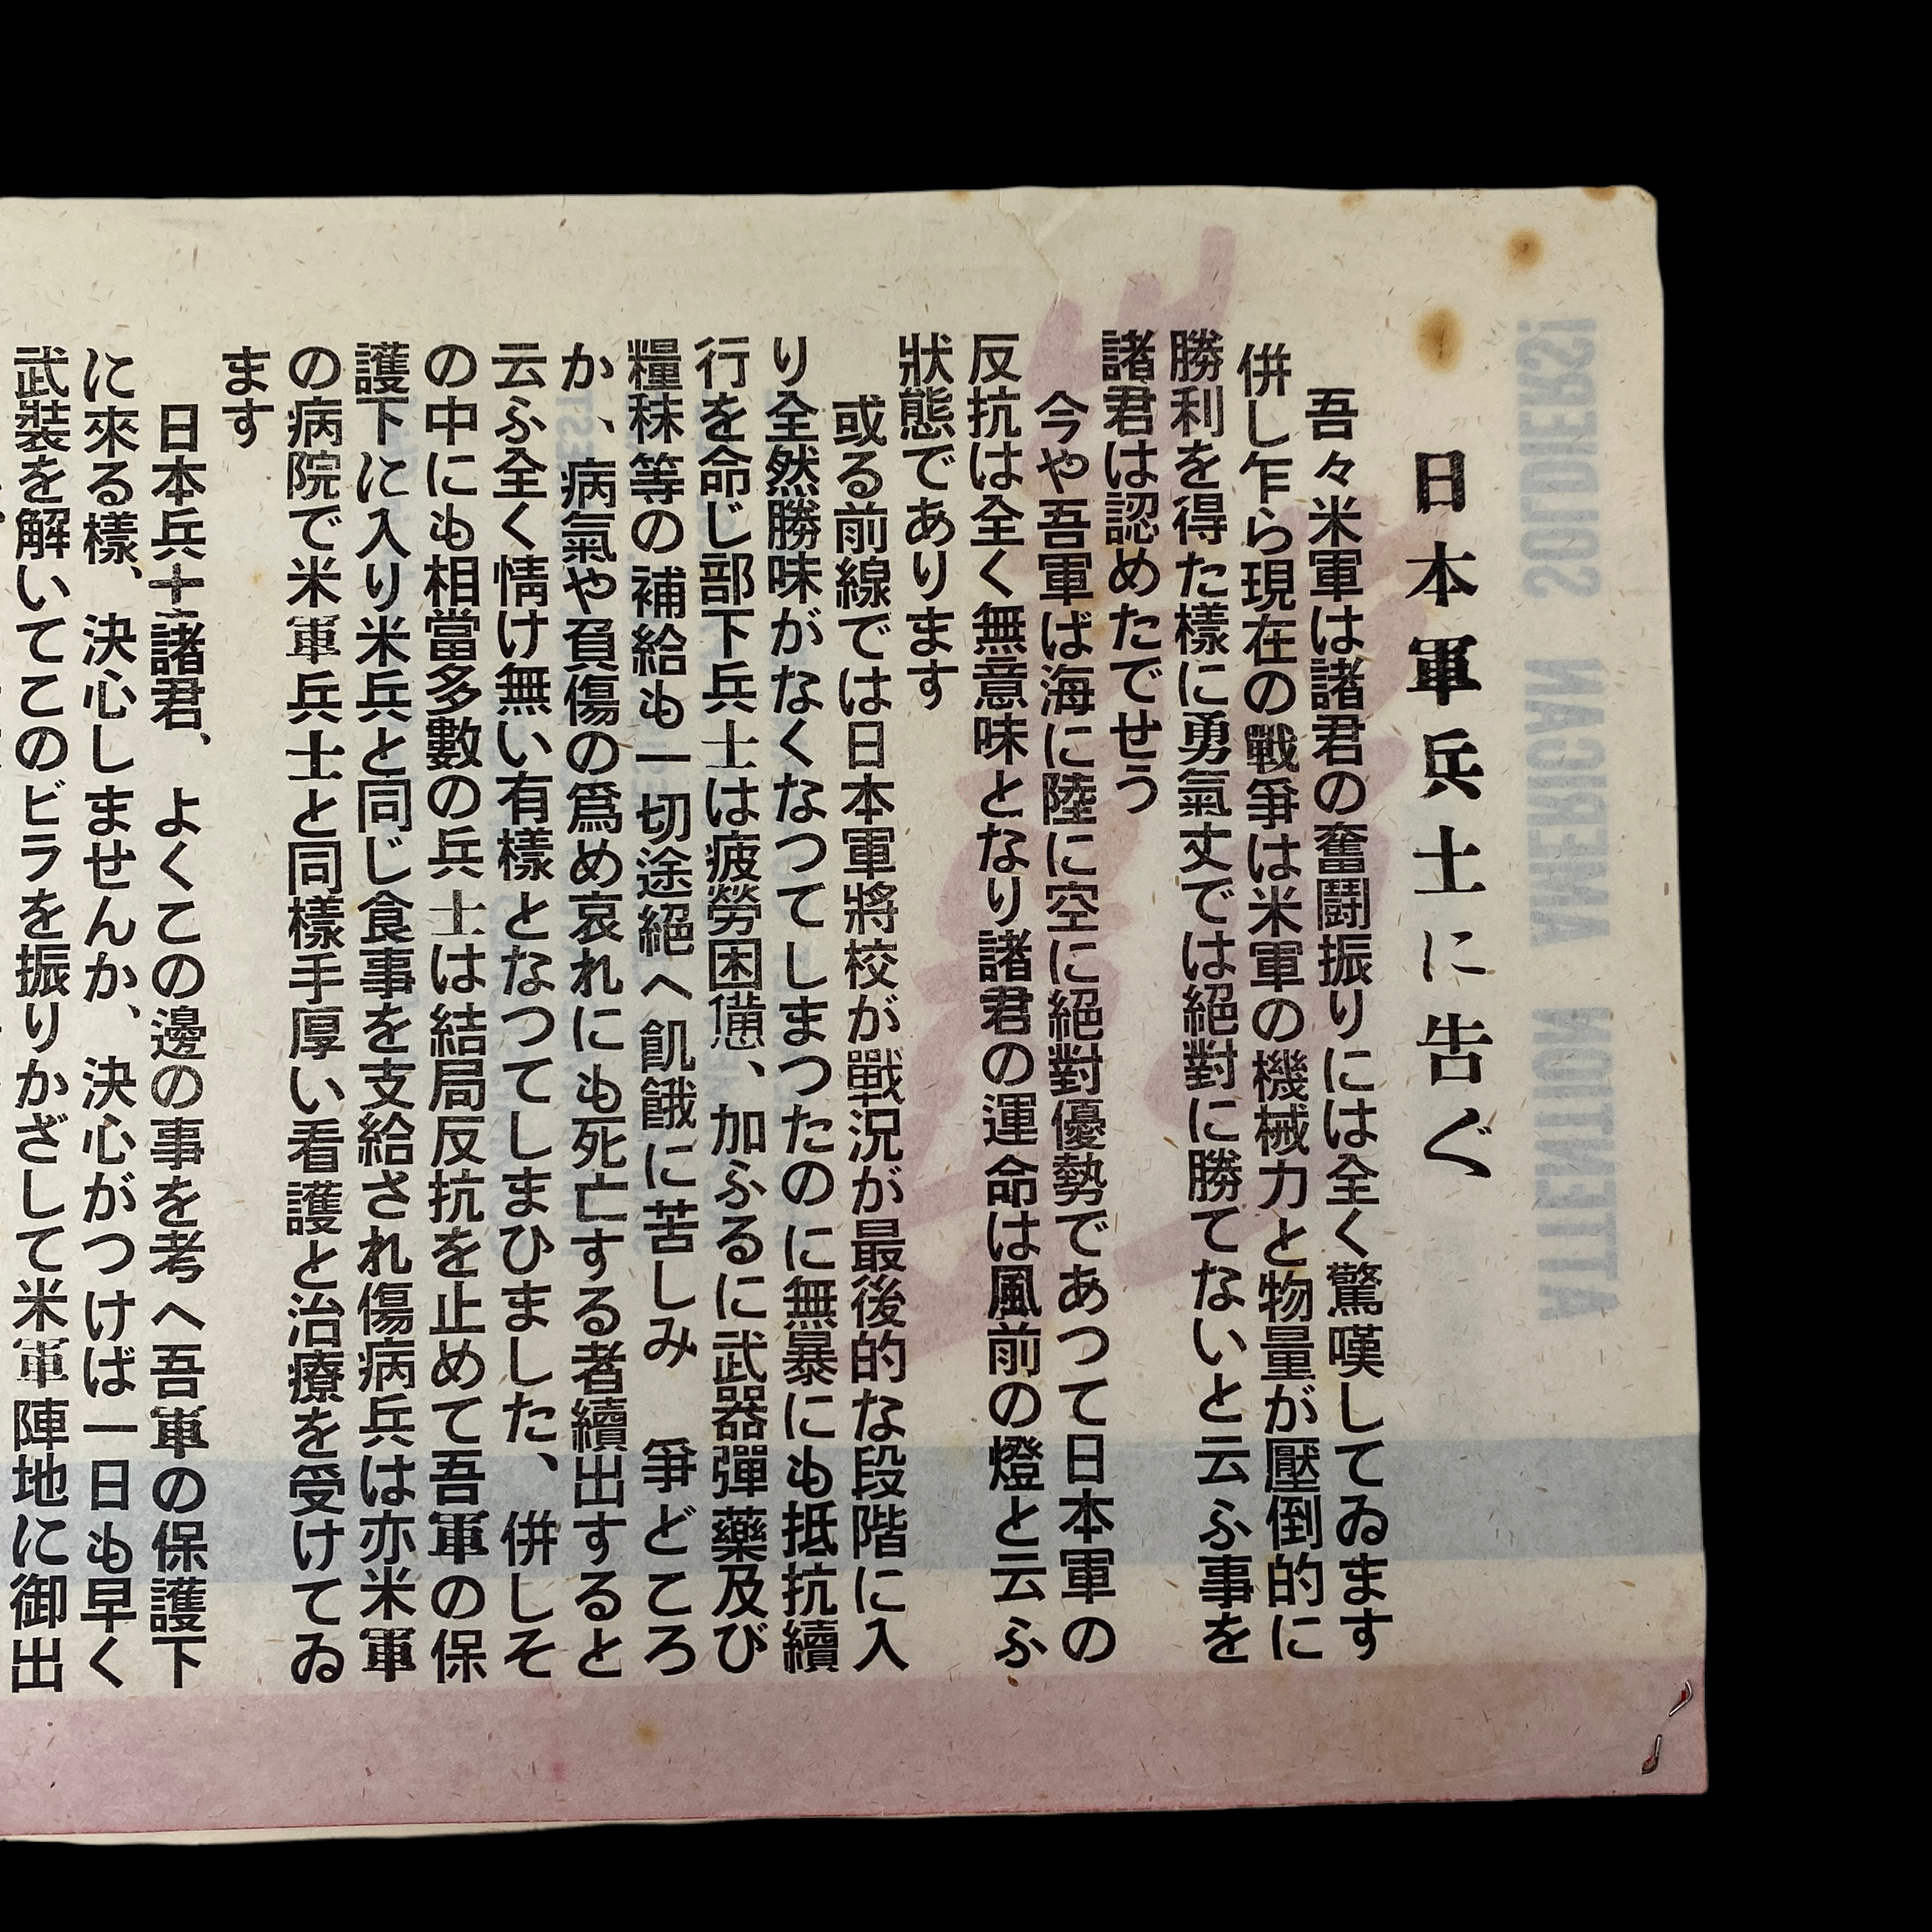 日本軍兵士に告ぐ
吾々米軍は諸君の奮鬪振りには全く驚嘆してゐます
併し乍ら現在の戰爭は米軍の機械力と物量が壓倒的に
勝利を得た樣に勇氣丈では絕對に勝てないと云ふ事を
諸君は認めたでせう
今や吾軍ば海に陸に空に絕對優勢であつて日本軍の
反抗は全く無意味となり諸君の運命は風前の燈と云ふ
狀態であります
或る前線では日本軍將校が戰況が最後的な段階に入
り全然勝味がなくなつてしまつたのに無暴にも抵抗續
行を命じ部下兵士は疲勞困憊、加ふるに武器彈藥及び
糧秣等の補給も一切途絕へ飢餓に苦しみ 爭どころ
か、病氣や負傷の爲め哀れにも死亡する者續出すると
云ふ全く情け無い有樣となつてしまひました、併しそ
の中にも相當多數の兵士は結局反抗を止めて吾軍の保
護下に入り米兵と同じ食事を支給され傷病兵は亦米軍
の病院で米軍兵士と同樣手厚い看護と治療を受けてゐ
ます
日本兵士諸君、よくこの邊の事を考へ吾軍の保護下
に來る樣、決心しませんか、決心がつけば一日も早く
武裝を解いてこのビラを振りかざして米軍陣地に御出
ATTENTION AMERICAN SOLDIERS!